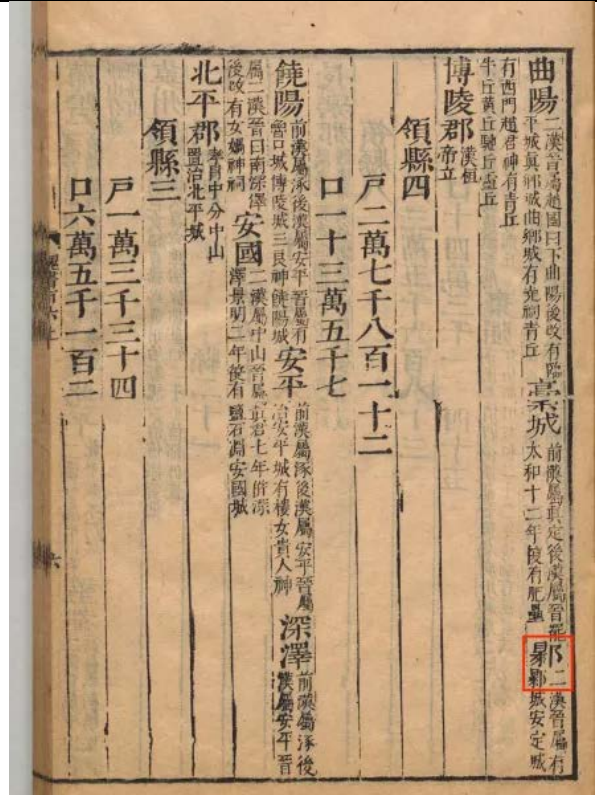 曲陽二漢晉屬趙國曰下曲陽後改有臨平城真鄉城曲鄉城有堯祠青丘藁城前漢屬真定後漢屬晉罷太和十二年復有肥壘鄡二漢晉屬有鄡城安定城
有西門趙君神有青丘牛丘黃丘馳丘靈丘
博陵郡漢桓帝立
領縣四
戶二萬七千八百一十二
口一十三萬五千七
饒陽前漢屬涿後漢屬安平晉屬有魯口城博陵城三良神饒陽城安平前漢屬涿後漢屬安平晉屬治安平城有樓女貴人神深澤前漢屬涿後漢屬安平晉
屬二漢晉曰南深澤後改有女媧神祠安國二漢屬中山晉屬真君七年併深澤景明二年復有鹽石淵安國城
北平郡孝昌中分中山置治北平城
領縣三
戶一萬三千三十四
口六萬五千一百二
魏書百六上
六